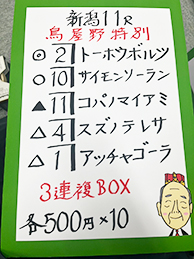 新潟11R
鳥屋野特別
◎2トーホウボルツ
○10サイモンソーラン
▲11コパノマイアミ
△4スズノテレサ
△1アッチャゴーラ
3連複BOX
各500円×10